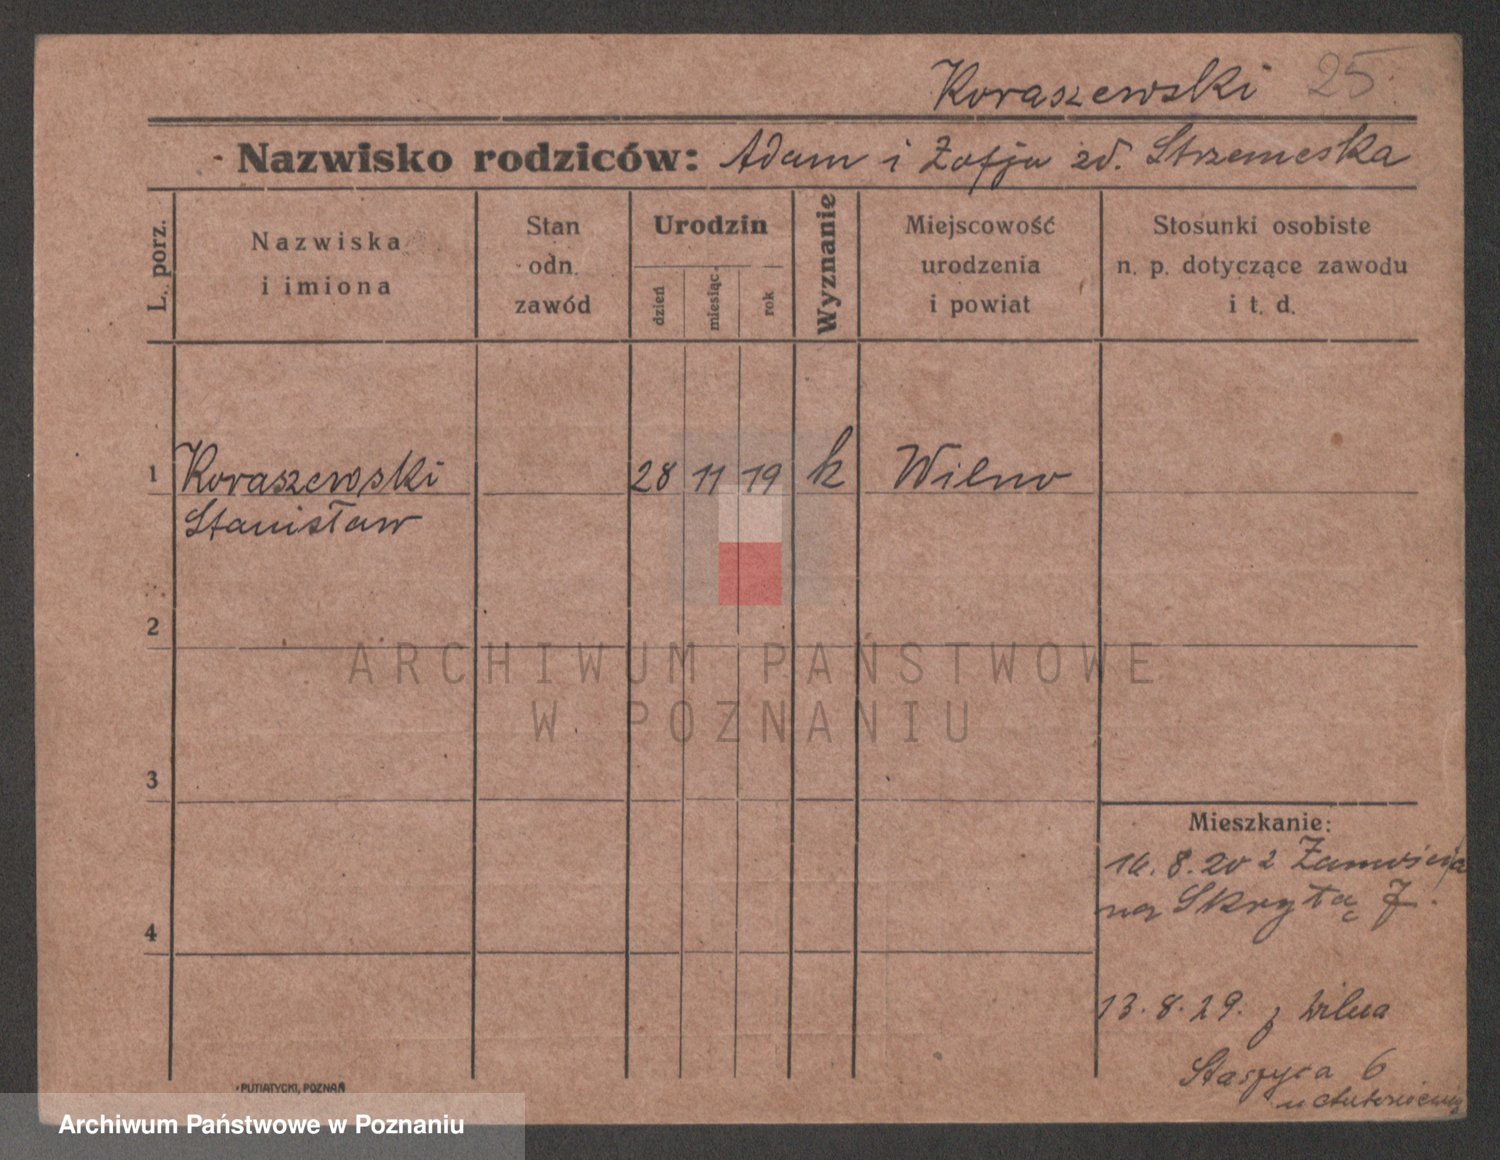 Koraszewski 25
Nazwisko rodziców: Adam i Zofja zd. Strzemeska
L. porz.
Nazwiska
i imiona
Stan
odn.
zawód
Urodzin
dzień
miesiąc
rok
Wyznanie
Miejscowość
urodzenia
i powiat
Stosunki osobiste
n. p. dotyczące zawodu
i t. d.
1 Koraszewski 28 11 19 k Wilno
Stanisław
2
ARCHIWUM PAŃSTWOWE
W POZNANIU
3
Mieszkanie:
14.8.20 z Zamościa
na Skrytą 7.
4
13.8.29. z Wilna
Staszyca 6
PUTIATYCKI, POZNAŃ
Archiwum Państwowe w Poznaniu